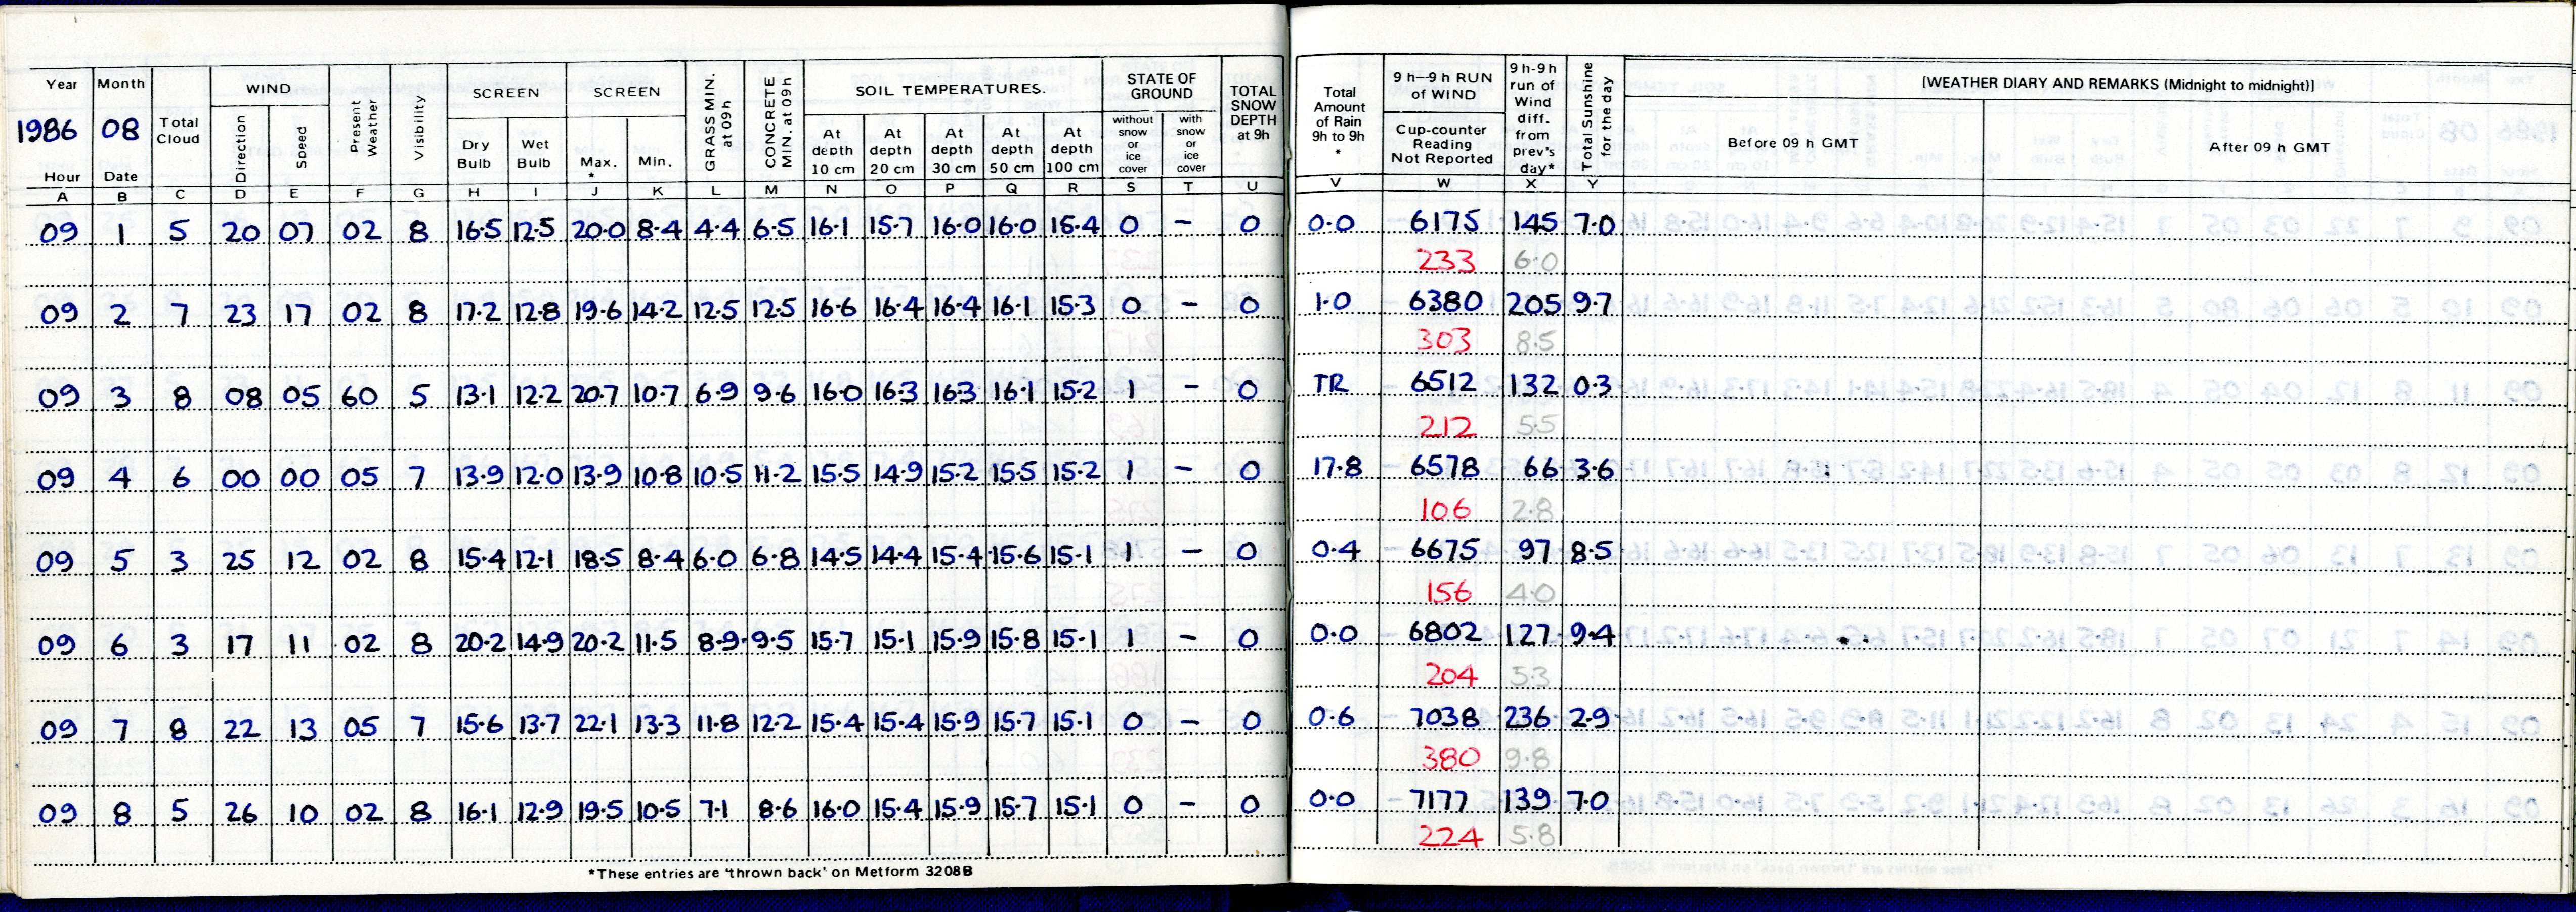 Year Month WIND SCREEN SCREEN SOIL TEMPERATURES. STATE OF GROUND
1986 08 Total Cloud Direction Speed Present Weather Visibility Dry Bulb Wet Bulb Max. * Min. GRASS MIN. at 09h CONCRETE MIN. at 09h At depth 10 cm At depth 20 cm At depth 30 cm At depth 50 cm At depth 100 cm without snow or ice cover with snow or ice cover TOTAL SNOW DEPTH at 9h
Hour Date
A B C D E F G H I J K L M N O P Q R S T U
09 1 5 20 07 02 8 16.5 12.5 20.0 8.4 4.4 6.5 16.1 15.7 16.0 16.0 15.4 0 - 0
09 2 7 23 17 02 8 17.2 12.8 19.6 14.2 12.5 12.5 16.6 16.4 16.4 16.1 15.3 0 - 0
09 3 8 08 05 60 5 13.1 12.2 20.7 10.7 6.9 9.6 16.0 16.3 16.3 16.1 15.2 1 - 0
09 4 6 00 00 05 7 13.9 12.0 13.9 10.8 10.5 11.2 15.5 14.9 15.2 15.5 15.2 1 - 0
09 5 3 25 12 02 8 15.4 12.1 18.5 8.4 6.0 6.8 14.5 14.4 15.4 15.6 15.1 1 - 0
09 6 3 17 11 02 8 20.2 14.9 20.2 11.5 8.9 9.5 15.7 15.1 15.9 15.8 15.1 1 - 0
09 7 8 22 13 05 7 15.6 13.7 22.1 13.3 11.8 12.2 15.4 15.4 15.9 15.7 15.1 0 - 0
09 8 5 26 10 02 8 16.1 12.9 19.5 10.5 7.1 8.6 16.0 15.4 15.9 15.7 15.1 0 - 0
*These entries are 'thrown back' on Metform 3208B
Total Amount of Rain 9h to 9h *
9 h—9 h RUN of WIND
Cup-counter Reading Not Reported
9 h-9 h run of Wind diff. from prev's day*
Total Sunshine for the day
[WEATHER DIARY AND REMARKS (Midnight to midnight)]
Before 09 h GMT After 09 h GMT
V W X Y
0.0 6175 145 7.0
233 6.0
1.0 6380 205 9.7
303 8.5
TR 6512 132 0.3
212 5.5
17.8 6578 66 3.6
106 2.8
0.4 6675 97 8.5
156 4.0
0.0 6802 127 9.4
204 5.3
0.6 7038 236 2.9
380 9.8
0.0 7177 139 7.0
224 5.8